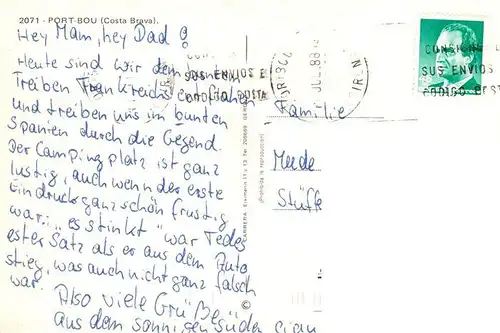 2071 - PORT-BOU (Costa Brava).
Hey Mam, hey Dad!
Heute sind wir dem bunten
Treiben Frankreichs entflohen
und treiben uns im bunten
Spanien durch die Gegend.
Der Campingplatz ist ganz
lustig, auch wenn der erste
Eindruck ganz schön frustig
war: "es stinkt" war Tedes
ester Satz als er aus dem Auto
stieg, was auch nicht ganz falsch
war.
Also viele Grüße
aus dem sonnigen Süden
Familie
SUS ENVIOS E
JUL. 88
CONSIGNE
SUS ENVIOS
CODIGO POST
(Prohibida la reproducción)
©